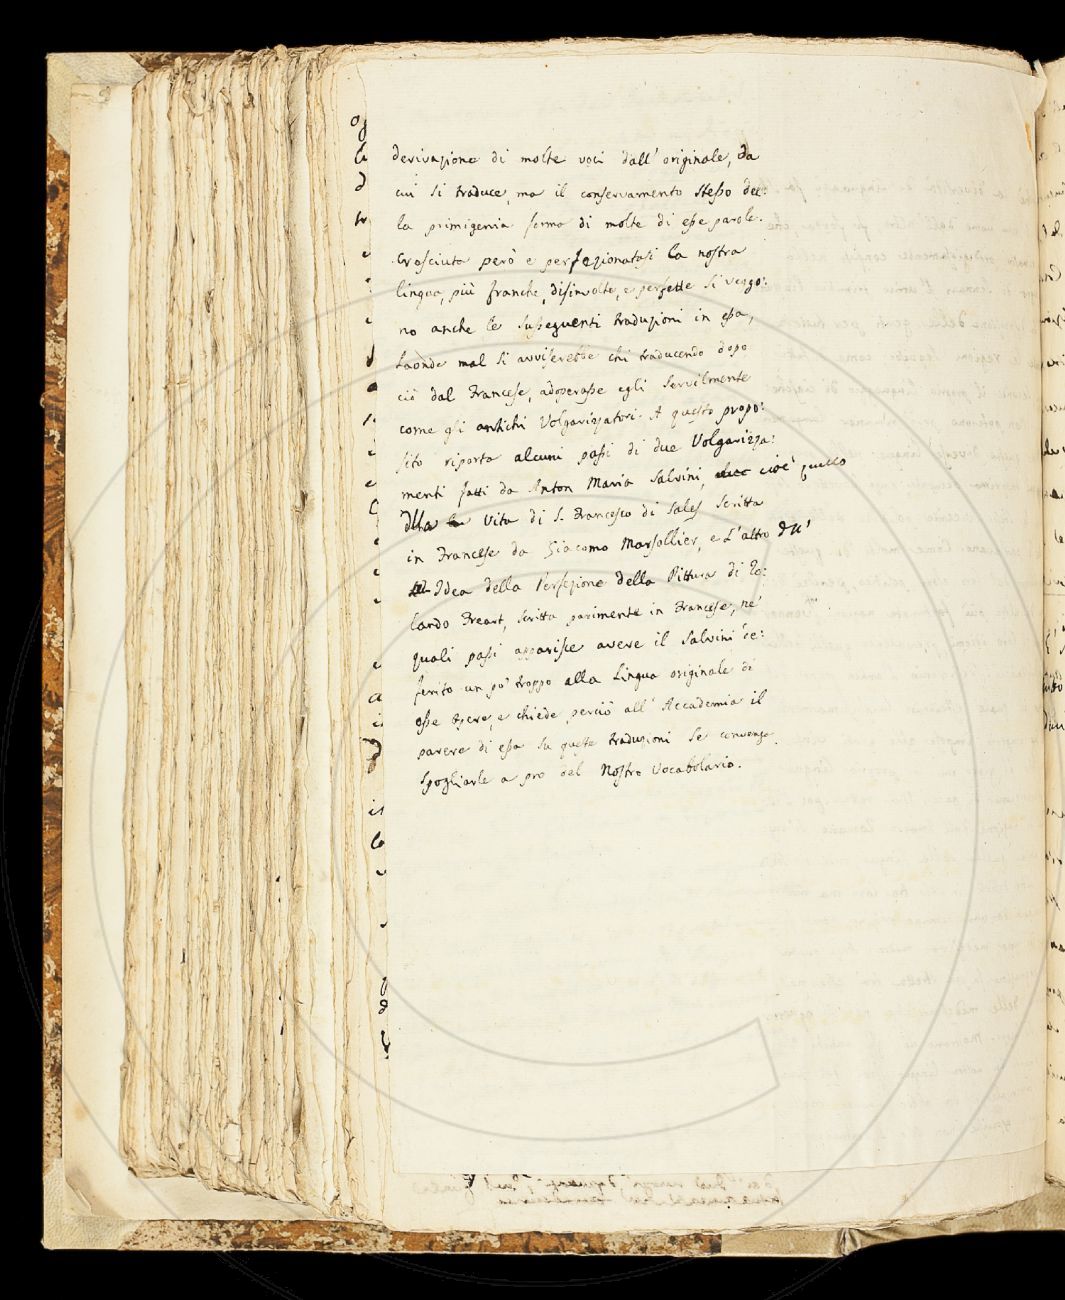 derivazione di molte voci dall' originale, da
cui si traduce, ma il conservamento stesso del:
la primigenia forma di molte di esse parole.
Cresciuta però e perfezionatasi la nostra
lingua, più franche, disinvolte, e perfette si veggo:
no anche le susseguenti traduzioni in essa,
laonde mal si avviserebbe chi traducendo dopo
ciò dal Francese, adoperasse egli servilmente
come gli antichi Volgarizzatori. A questo propo:
sito riporta alcuni passi di due Volgarizza:
menti fatti da Anton Maria Salvini, cioè quello
della Vita di S. Francesco di Sales scritta
in Francese da Giacomo Marsollier, e l'altro dell'
Idea della Perfezione della Pittura di Ro:
lando Freart, scritta parimente in Francese, ne'
quali passi apparisce avere il Salvini de:
ferito un po' troppo alla Lingua originale di
esse Opere, e chiede perciò all' Accademia il
parere di essa su queste traduzioni se convenga
spogliarle a pro del Nostro Vocabolario.